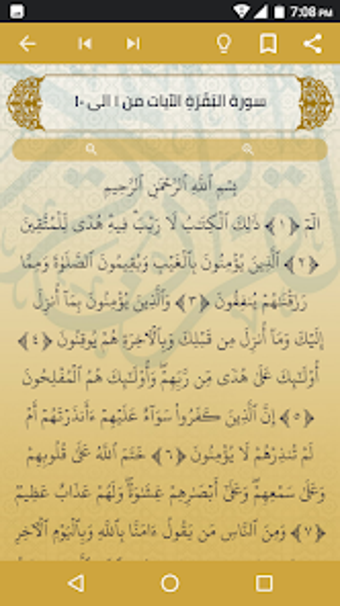 7:08 PM
سورة البَقَرَةِ الآيات من ١ الى ١٠
بِسْمِ ٱللَّهِ ٱلرَّحْمَٰنِ ٱلرَّحِيمِ
الٓمٓ ﴿١﴾ ذَٰلِكَ ٱلْكِتَٰبُ لَا رَيْبَۛ فِيهِۛ هُدًى لِّلْمُتَّقِينَ
﴿٢﴾ ٱلَّذِينَ يُؤْمِنُونَ بِٱلْغَيْبِ وَيُقِيمُونَ ٱلصَّلَوٰةَ وَمِمَّا
رَزَقْنَٰهُمْ يُنفِقُونَ ﴿٣﴾ وَٱلَّذِينَ يُؤْمِنُونَ بِمَآ أُنزِلَ
إِلَيْكَ وَمَآ أُنزِلَ مِن قَبْلِكَ وَبِٱلْءَاخِرَةِ هُمْ يُوقِنُونَ ﴿٤﴾
أُو۟لَٰٓئِكَ عَلَىٰ هُدًى مِّن رَّبِّهِمْ ۖ وَأُو۟لَٰٓئِكَ هُمُ ٱلْمُفْلِحُونَ
﴿٥﴾ إِنَّ ٱلَّذِينَ كَفَرُوا۟ سَوَآءٌ عَلَيْهِمْ ءَأَنذَرْتَهُمْ أَمْ
لَمْ تُنذِرْهُمْ لَا يُؤْمِنُونَ ﴿٦﴾ خَتَمَ ٱللَّهُ عَلَىٰ قُلُوبِهِمْ
وَعَلَىٰ سَمْعِهِمْ ۖ وَعَلَىٰٓ أَبْصَٰرِهِمْ غِشَٰوَةٌ ۖ وَلَهُمْ عَذَابٌ عَظِيمٌ
﴿٧﴾ وَمِنَ ٱلنَّاسِ مَن يَقُولُ ءَامَنَّا بِٱللَّهِ وَبِٱلْيَوْمِ ٱلْءَاخِرِ